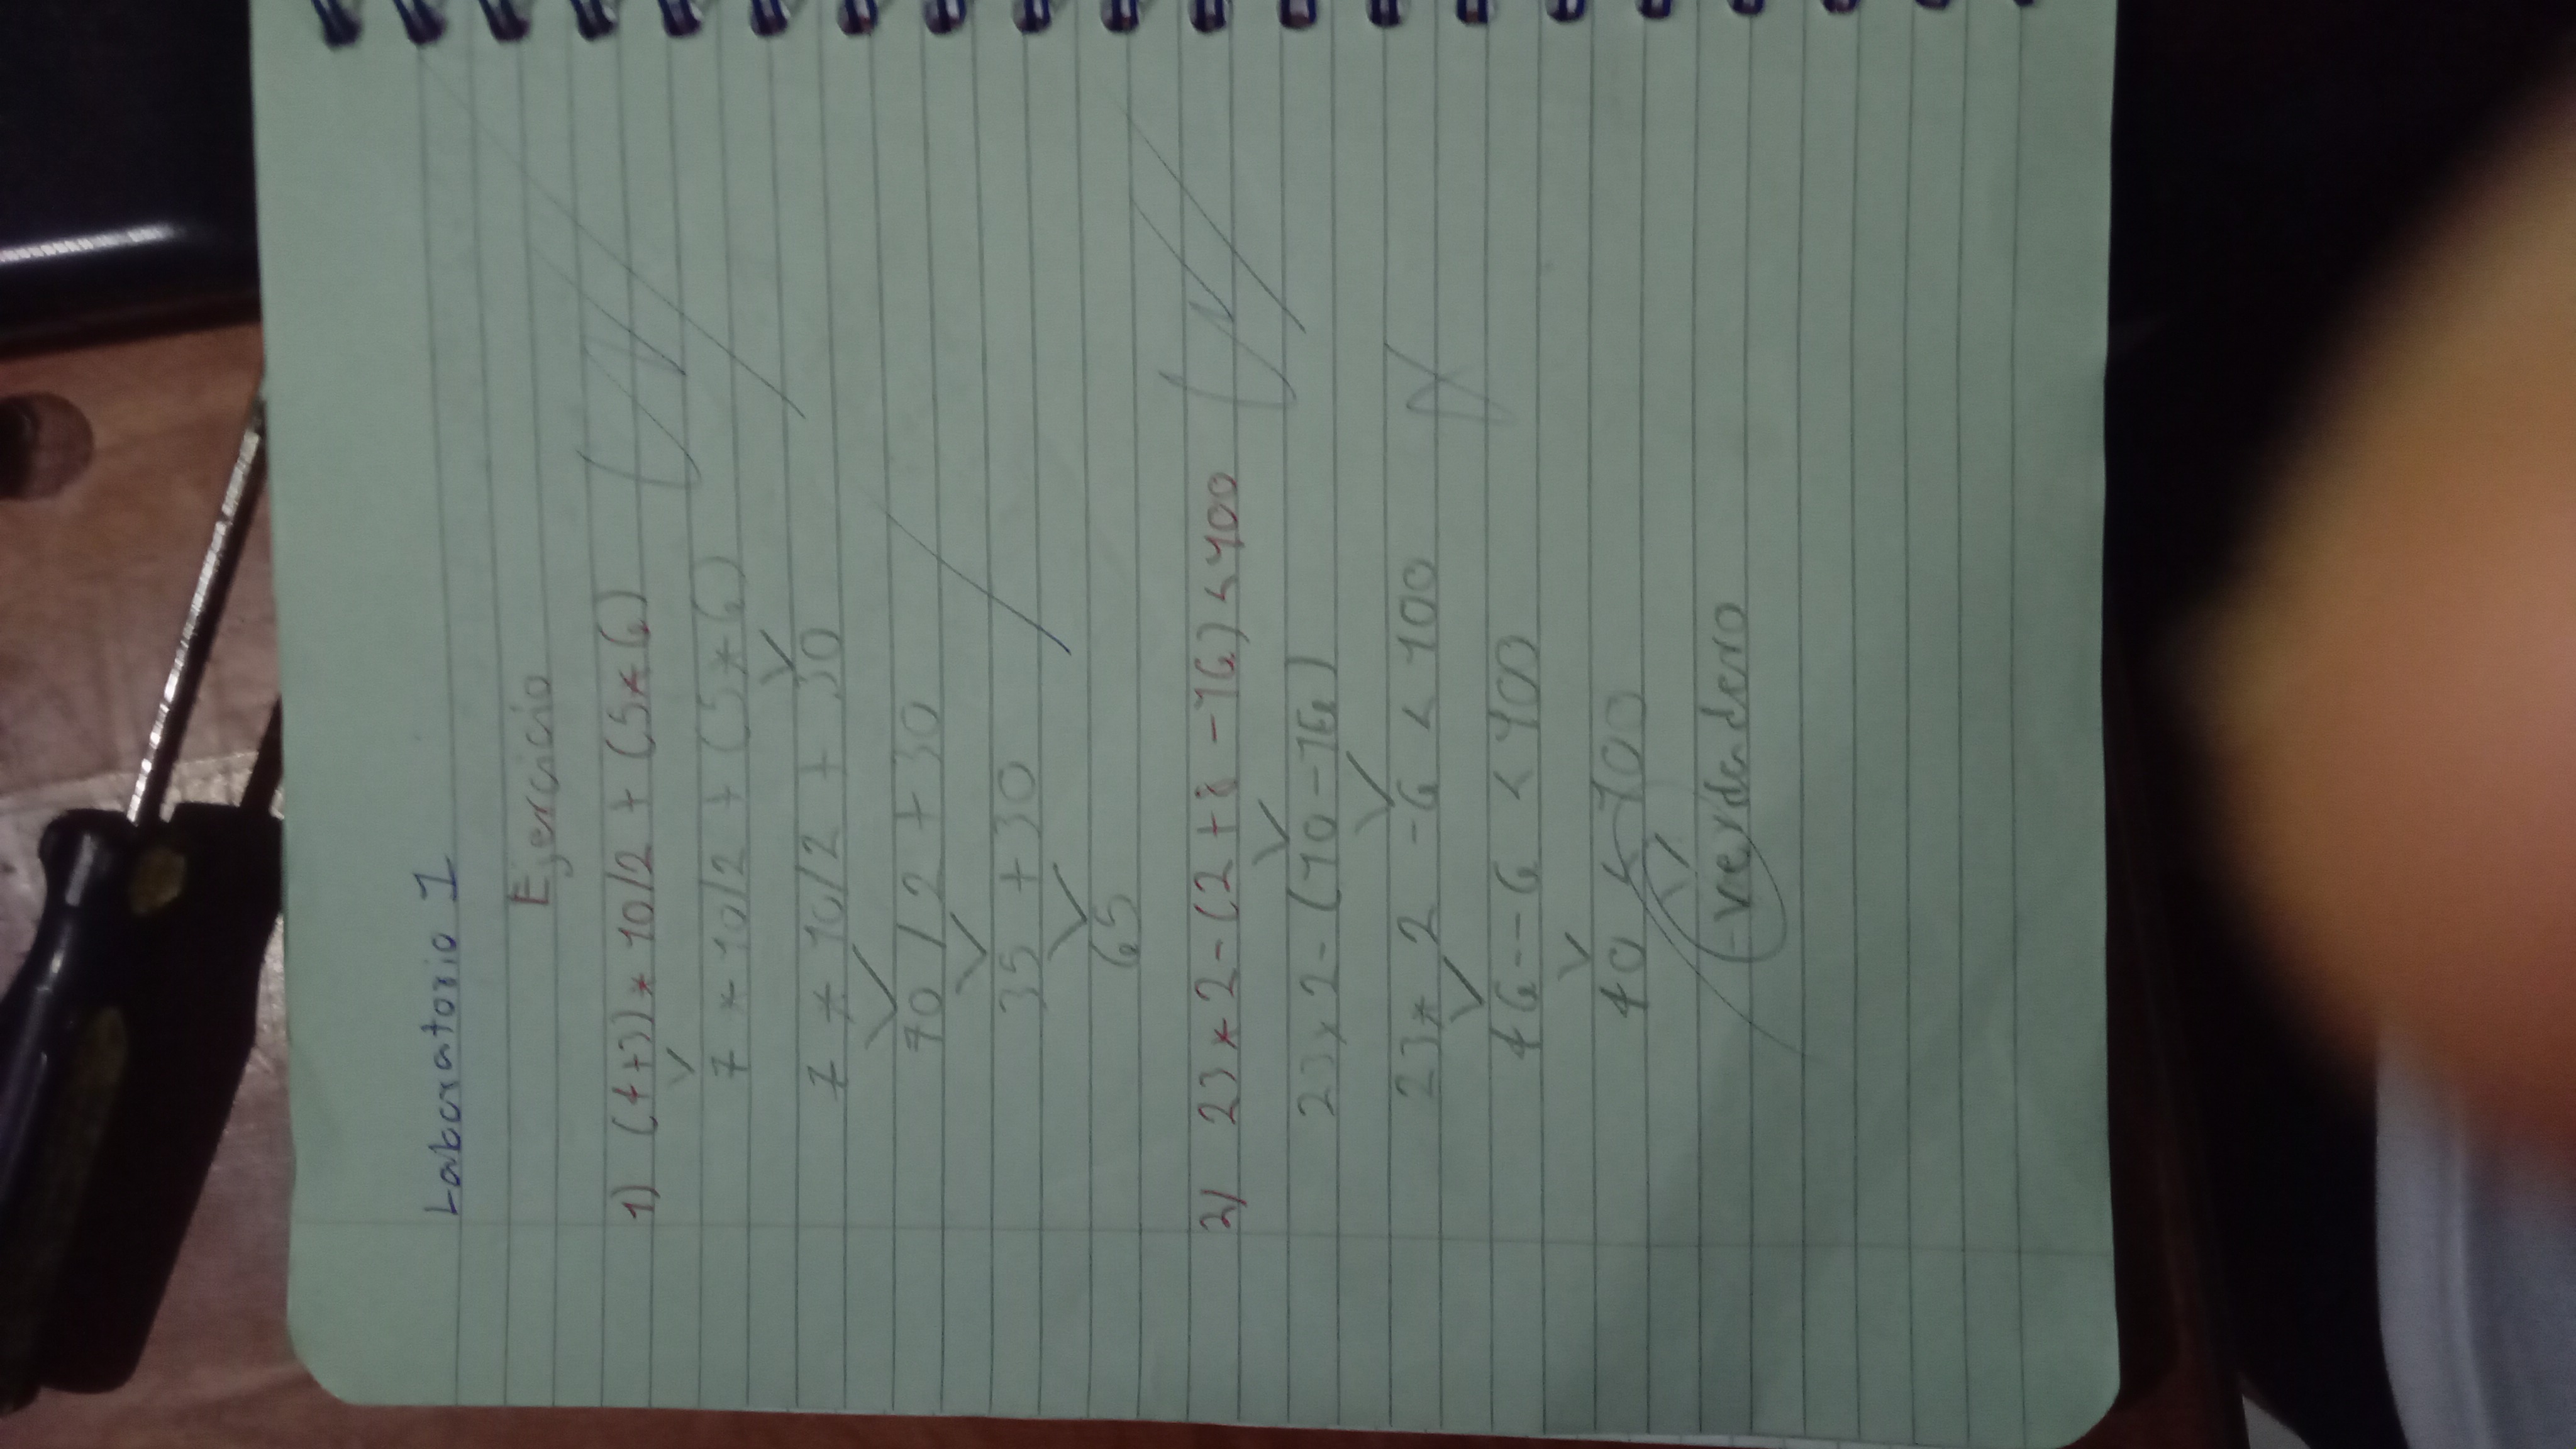 Laboratorio 1
Ejercicio
1) (4+3)*10/2 + (5*6)
7 * 10/2 + (5*6)
7 * 10/2 + 30
70 / 2 + 30
35 + 30
65
2) 23*2-(2+8-16)<100
23*2-(10-16)
23*2 -6 < 100
46--6 < 100
40 < 100
verdadero